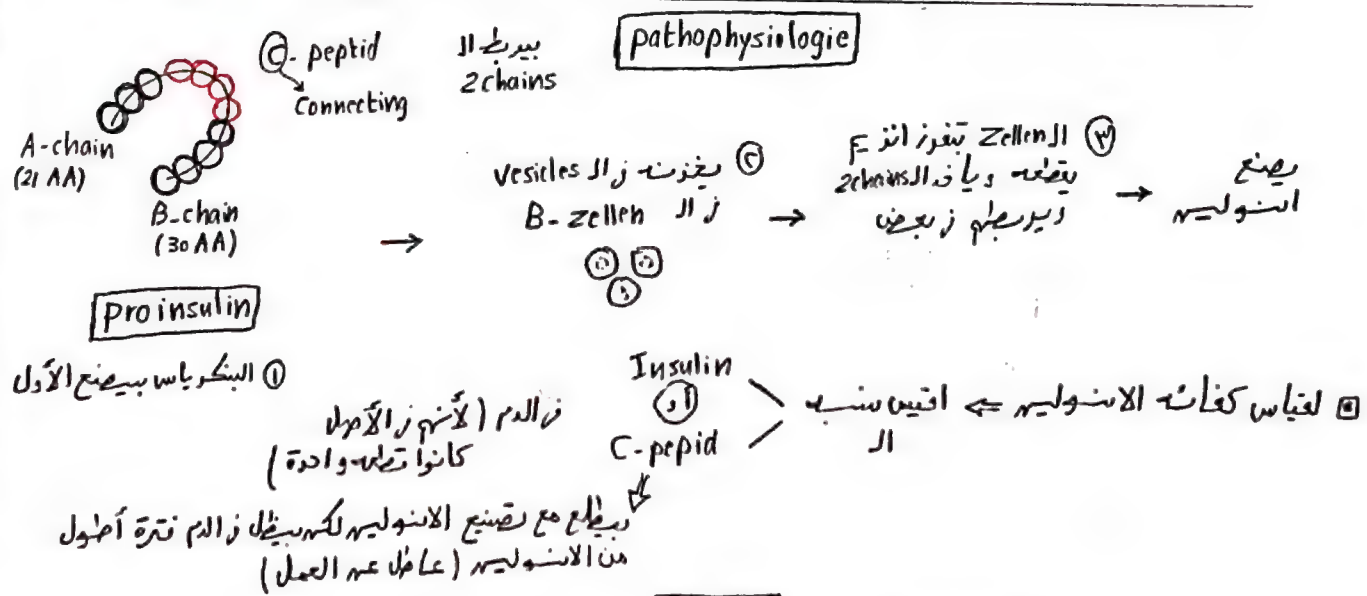 pathophysiologie
C-peptid
Connecting
بيربط ال
2 chains
A-chain
(21 AA)
B-chain
(30 AA)
Proinsulin
① البنكرياس بيصنع الأول
② يخزنه ف ال vesicles
ف ال B-Zellen
③ ال Zellen تفرز انزيم
يقطعه وياخد ال 2chains
ويربطهم ف بعض
يصنع
انسولين
لقياس كفائه الانسولين ⇐ اقيس نسبه
ال
Insulin
أو
C-pepid
ف الدم (لأنهم ف الأصل
كانوا قطعه واحدة)
بيطلع مع تصنيع الانسولين لكن بيظل ف الدم فترة أطول
من الانسولين (عاطل عن العمل)